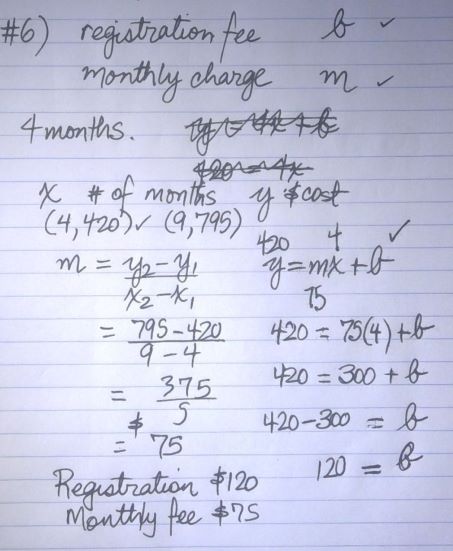 #6) registration fee b ✓
monthly charge m ✓
4 months. y = 4x + b
420 = 4x
x # of months y $ cost
(4,420) ✓ (9,795)
m = y₂ - y₁
x₂ - x₁
= 795 - 420
9 - 4
= 375
5
= $75
420 4 ✓
y = mx + b
75
420 = 75(4) + b
420 = 300 + b
420 - 300 = b
120 = b
Registration $120
Monthly fee $75